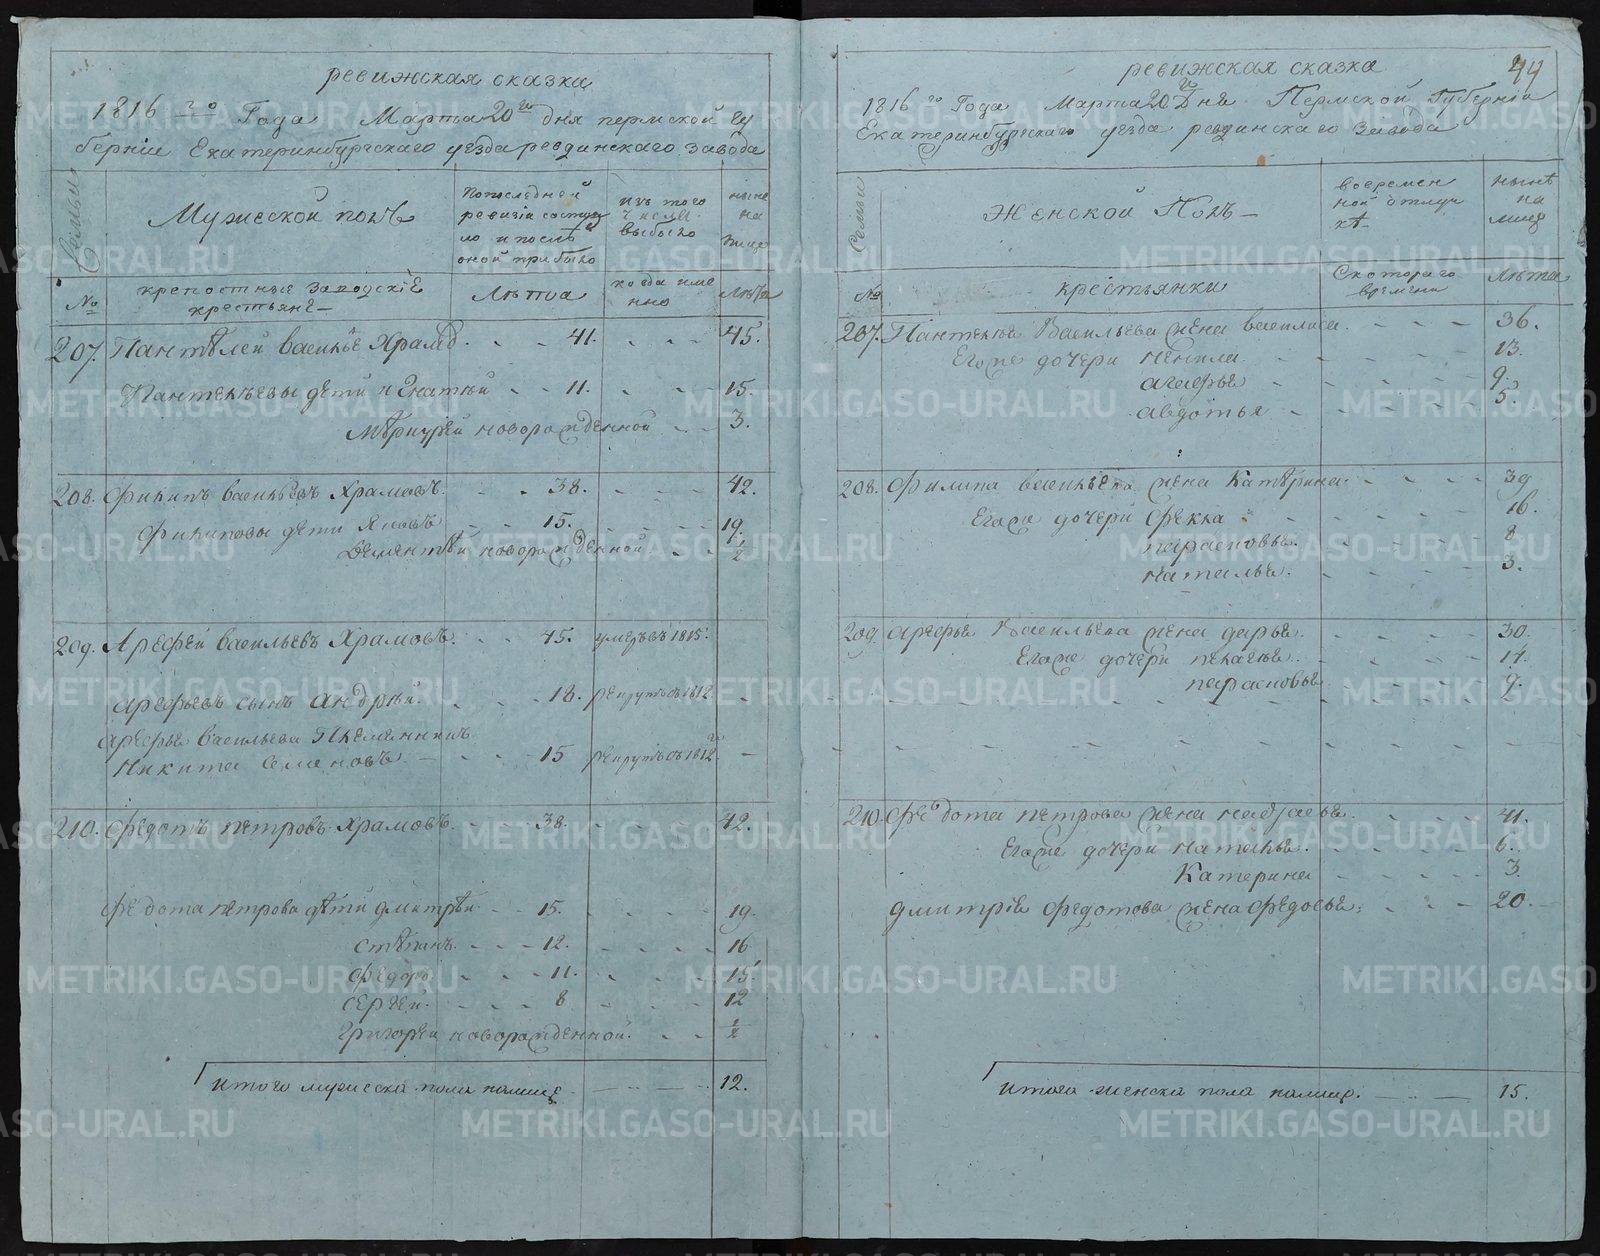 ревижская сказка
1816 го Года Марта 20 го дня пермской гу
бернiи Екатеринбургскаго уезда ревдинскаго завода
Семьи
Мужеской полъ
Попоследней
ревизiи состоя
ло и послѣ
оной прибыло
изъ того
числа
выбыло
ныне
на
лицо
№
крепостные заводскiе
крестьяне
Лѣта
когда име
нно
Лѣта
207. Пантѣлей васильев Храмов 41. 45.
Пантелѣевы дети 11. 15.
новорожденной 3.
208. Филипъ васильевъ Храмовъ. 38. 42.
Филиповы дети Яковъ 15. 19.
Дементѣй новорожденной 1/2
209. Арефей васильевъ Храмовъ. 45. умеръ въ 1815.
арефьевъ сынъ андрѣй. 18. рекрутъ съ 1812
арефья васильева племянникъ
Никита Семеновъ 15 рекрутъ съ 1812 го
210. Федотъ петровъ Храмовъ. 38. 42.
Федота петрова дѣти дмитрѣй 15. 19.
Стѣпанъ. 12. 16
Федоръ 11. 15.
Сергеи. 8 12
Григорей новорожденной. 1/2
итого мужеска пола налице 12.
44
ревижская сказка
1816 го Года Марта 20 го Дня Пермской Губернiи
Екатеринбургскаго уезда ревдинскаго завода
Семьи
Женской Полъ
вовремен
ной отлуч
кѣ
нынѣ
на
лицо
№
крестьянки
Скотораго
времени
Лѣта
207. Пантелѣя Васильева жена василиса. 36.
Егоже дочери ненила 13.
агафья 9.
авдотья 5.
208. Филипа васильева жена Катѣрина. 39
Егоже дочери Фекла 16.
парасковья. 8
наталья. 3.
209. арефья Васильева жена дарья. 30.
Егоже дочери пелагея. 14.
парасковья 9.
210. Федота петрова жена надѣжда. 41.
Егоже дочери наталья. 6.
Катерина 3.
дмитрiя Федотова жена федосья. 20.
итого женска пола налице. 15.
METRIKI.GASO-URAL.RU